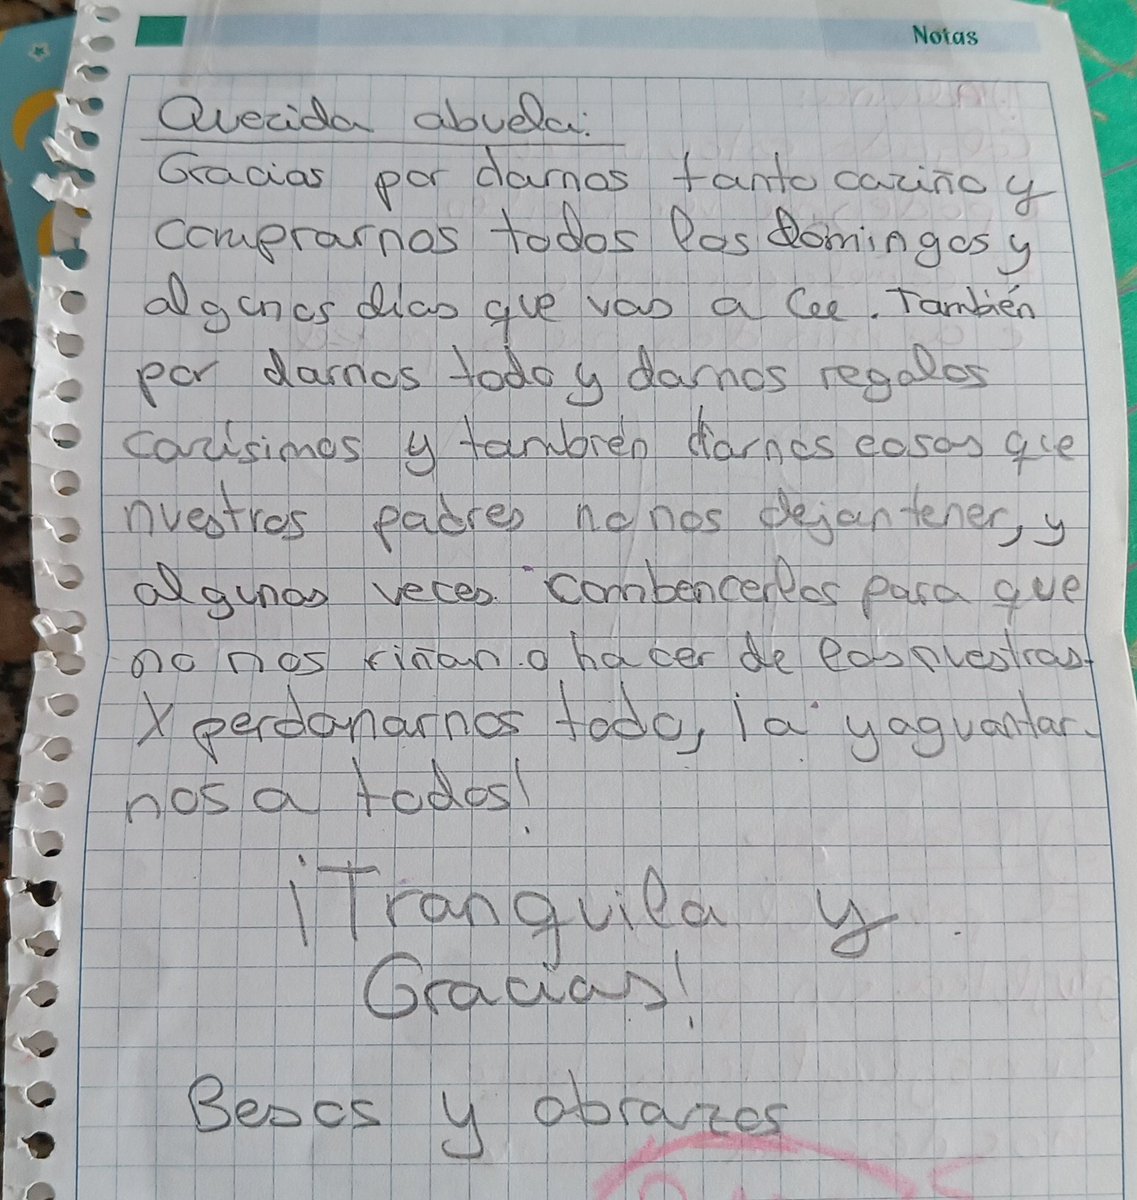 Notas
Querida abuela:
Gracias por darnos tanto cariño y
comprarnos todos los domingos y
algunos dias que vas a Cee. También
por darnos todo y darnos regalos
carísimos y también darnos cosas que
nuestros padres no nos dejan tener, y
algunas veces combencerlos para que
no nos riñan o hacer de las nuestras
X perdonarnos todo, y aguantar-
nos a todos!
¡Tranquila y
Gracias!
Besos y abrazos